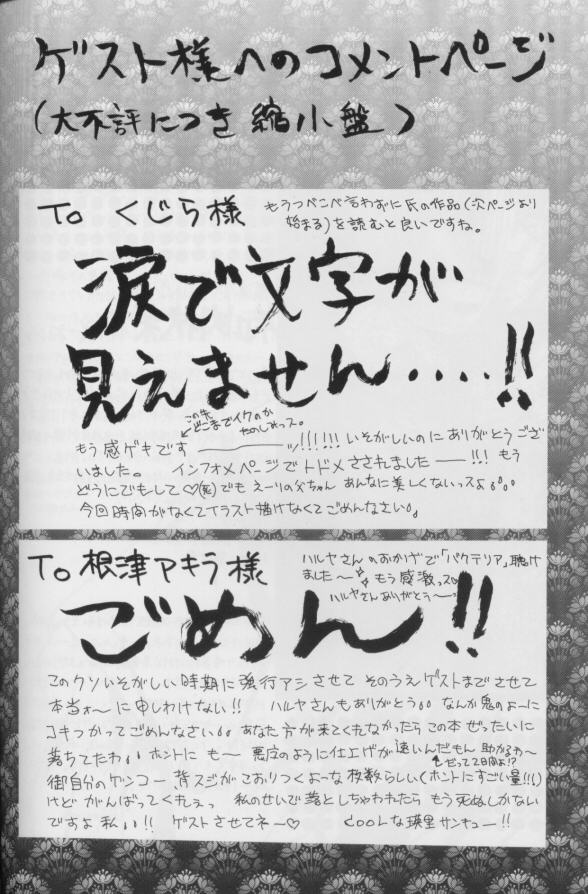 ゲスト様へのコメントページ
(大不評につき 縮小盤)
To くじら様
もうつべこべ言わずに氏の作品(次ページより
始まる)を読むと良いですね。
涙で文字が
見えません‥‥!!
この先
どこまでイクのか
もう感ゲキです ――ッ!!!!!! いそがしいのにありがとうござ
いました。 インフォメページでトドメさされました――!!! もう
どうにでもして♡ でもえーりの父ちゃん あんなに美しくないっスよ。。。
今回時間がなくてイラスト描けなくてごめんなさい。。
To 根津アキラ様
ハルヤさんのおかげで「バクテリア」聴け
ました〜 もう感激っス
ハルヤさんありがとう〜
ごめん!!
このクソいそがしい時期に強行アシさせて そのうえゲストまでさせて
本当ォ〜に申しわけない!! ハルヤさんもありがとう。。 なんか鬼のよーに
コキつかってごめんなさい。。 あなた方が来てくれなかったら この本ぜったいに
落ちてたわ。。 ホントに も〜 悪夢のように仕上げが速いんだもん 助かるわ〜
だって2日向よ!?
御自分のゲンコー、背スジがこおりつくよーな枚数らしい(ホントにすごい量!!)
けど がんばってくれぇっ 私のせいで落としちゃわれたら もう死ぬしかない
ですよ 私い!! ゲストさせてネー♡ Coolな瑛里サンキュー!!